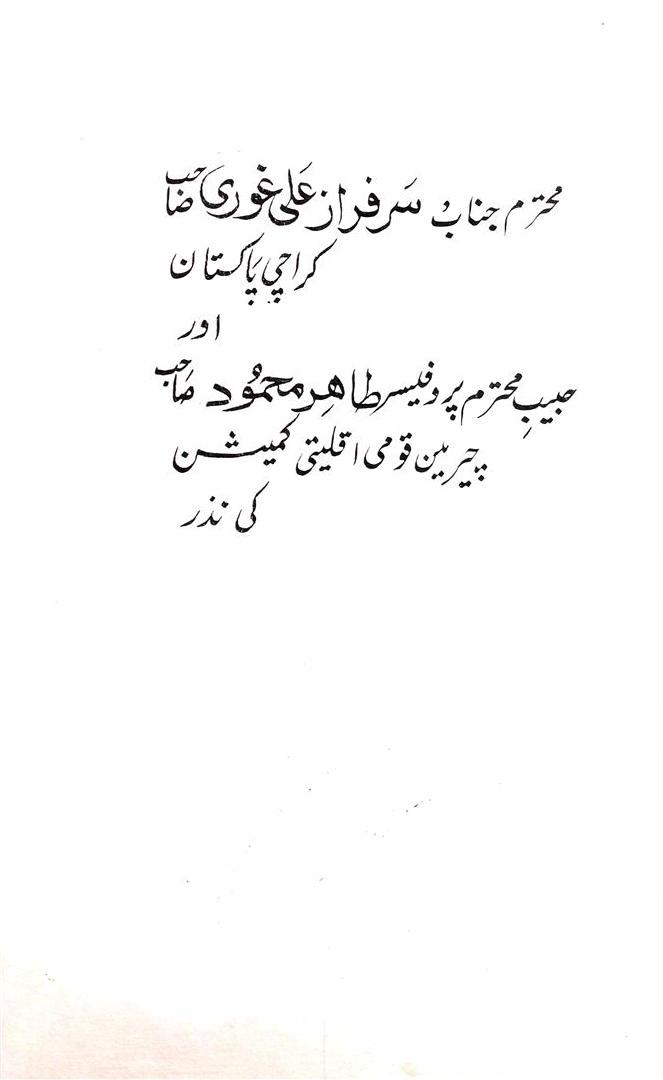 محترم جناب سَرفراز عَلی غوری صَاحب
کراچی پاکستان
اور
حبیبِ محترم پروفیسر طاہِر محمُود صَاحب
چیرمین قومی اقلیتی کمیشن
کی نذر